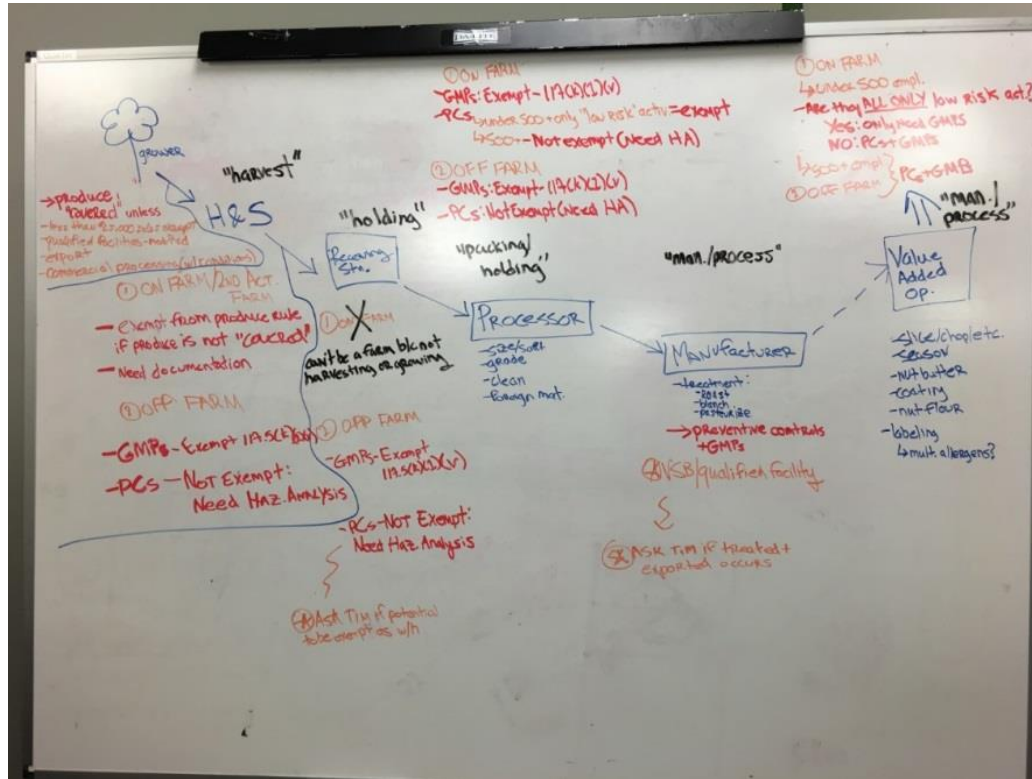 grower
→ produce
"covered" unless
- less than $25,000 sales exempt
- qualified facilities - modified
- export
- commercial processing (w/ conditions)
"harvest"
H&S
① ON FARM/2ND ACT.
FARM
- exempt from produce rule
if produce is not "covered"
- Need documentation
② OFF FARM
- GMPs - Exempt 117.5(k)
- PCs - NOT EXEMPT:
Need Haz. Analysis
"holding"
Receiving
Sta.
① ON FARM
can't be a farm b/c not
harvesting or growing
② OFF FARM
- GMPs - Exempt
117.5(k)(1)(v)
- PCs - NOT Exempt:
Need Haz. Analysis
ASK TIM if potential
to be exempt as w/h
① ON FARM
- GMPs: Exempt - 117(k)(1)(v)
- PCs under 500 + only "low risk" activ = exempt
↳ 500+ - Not exempt (Need HA)
② OFF FARM
- GMPs: Exempt - 117(k)(1)(v)
- PCs: Not Exempt (Need HA)
"packing/
holding"
PROCESSOR
- size/sort
- grade
- clean
- foreign mat.
"man./process"
MANUFACTURER
- treatment:
- roast
- blanch
- pasteurize
→ preventive controls
+ GMPs
VSB/qualified facility
ASK TIM if treated +
exported occurs
① ON FARM
↳ under 500 empl.
- Are they ALL ONLY low risk act.?
Yes: only need GMPs
NO: PCs + GMPs
↳ 500 + empl
② OFF FARM } PCs + GMB
"man./
process"
Value
Added
Op.
- slice/chop/etc.
- season
- nut butter
- coating
- nut flour
- labeling
↳ mult. allergens?